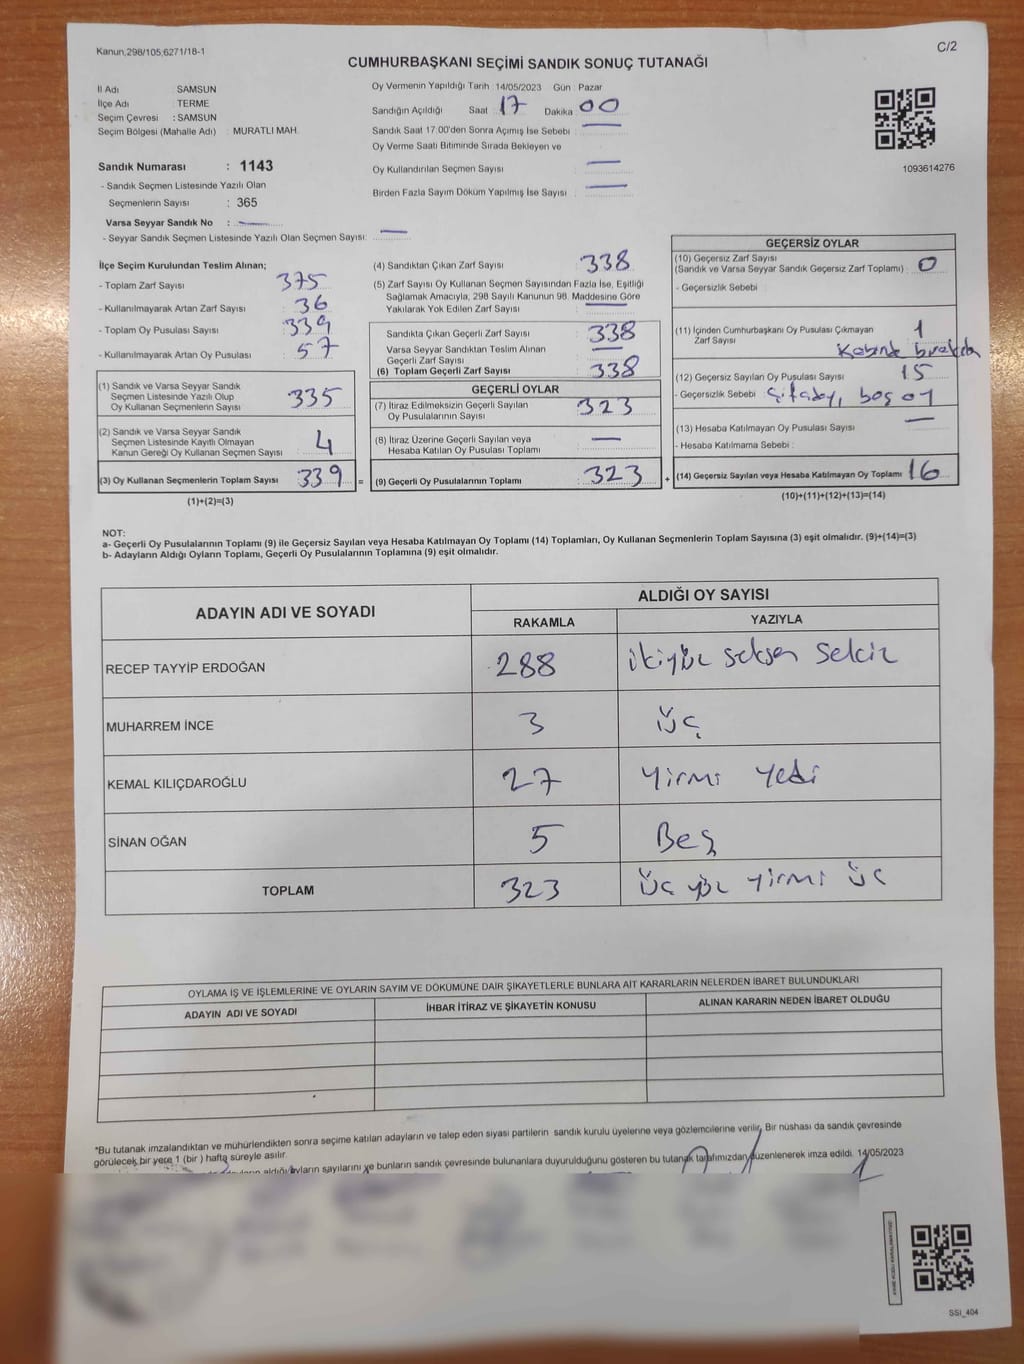 Kanun,298/105,6271/18-1
C/2
CUMHURBAŞKANI SEÇİMİ SANDIK SONUÇ TUTANAĞI
İl Adı : SAMSUN
İlçe Adı : TERME
Seçim Çevresi : SAMSUN
Seçim Bölgesi (Mahalle Adı) : MURATLI MAH.
Sandık Numarası : 1143
- Sandık Seçmen Listesinde Yazılı Olan
Seçmenlerin Sayısı : 365
Varsa Seyyar Sandık No :
- Seyyar Sandık Seçmen Listesinde Yazılı Olan Seçmen Sayısı:
Oy Vermenin Yapıldığı Tarih : 14/05/2023 Gün : Pazar
Sandığın Açıldığı Saat 17 Dakika 00
Sandık Saat 17.00'den Sonra Açımış İse Sebebi :
Oy Verme Saati Bitiminde Sırada Bekleyen ve
Oy Kullandırılan Seçmen Sayısı
Birden Fazla Sayım Döküm Yapılmış İse Sayısı
1093614276
İlçe Seçim Kurulundan Teslim Alınan;
- Toplam Zarf Sayısı : 375
- Kullanılmayarak Artan Zarf Sayısı : 36
- Toplam Oy Pusulası Sayısı : 339
- Kullanılmayarak Artan Oy Pusulası : 57
(1) Sandık ve Varsa Seyyar Sandık
Seçmen Listesinde Yazılı Olup
Oy Kullanan Seçmenlerin Sayısı : 335
(2) Sandık ve Varsa Seyyar Sandık
Seçmen Listesinde Kayıtlı Olmayan
Kanun Gereği Oy Kullanan Seçmen Sayısı : 4
(3) Oy Kullanan Seçmenlerin Toplam Sayısı : 339 =
(1)+(2)=(3)
(4) Sandıktan Çıkan Zarf Sayısı : 338
(5) Zarf Sayısı Oy Kullanan Seçmen Sayısından Fazla İse, Eşitliği
Sağlamak Amacıyla, 298 Sayılı Kanunun 98. Maddesine Göre
Yakılarak Yok Edilen Zarf Sayısı :
Sandıkta Çıkan Geçerli Zarf Sayısı : 338
Varsa Seyyar Sandıktan Teslim Alınan
Geçerli Zarf Sayısı
(6) Toplam Geçerli Zarf Sayısı : 338
GEÇERLİ OYLAR
(7) İtiraz Edilmeksizin Geçerli Sayılan
Oy Pusulalarının Sayısı : 323
(8) İtiraz Üzerine Geçerli Sayılan veya
Hesaba Katılan Oy Pusulası Toplamı :
(9) Geçerli Oy Pusulalarının Toplamı : 323 +
GEÇERSİZ OYLAR
(10) Geçersiz Zarf Sayısı
(Sandık ve Varsa Seyyar Sandık Geçersiz Zarf Toplamı) : 0
- Geçersizlik Sebebi :
(11) İçinden Cumhurbaşkanı Oy Pusulası Çıkmayan
Zarf Sayısı : 1
(12) Geçersiz Sayılan Oy Pusulası Sayısı : 15
- Geçersizlik Sebebi : boş oy
(13) Hesaba Katılmayan Oy Pusulası Sayısı :
- Hesaba Katılmama Sebebi :
(14) Geçersiz Sayılan veya Hesaba Katılmayan Oy Toplamı : 16
(10)+(11)+(12)+(13)=(14)
NOT:
a- Geçerli Oy Pusulalarının Toplamı (9) ile Geçersiz Sayılan veya Hesaba Katılmayan Oy Toplamı (14) Toplamları, Oy Kullanan Seçmenlerin Toplam Sayısına (3) eşit olmalıdır. (9)+(14)=(3)
b- Adayların Aldığı Oyların Toplamı, Geçerli Oy Pusulalarının Toplamına (9) eşit olmalıdır.
ADAYIN ADI VE SOYADI
ALDIĞI OY SAYISI
RAKAMLA YAZIYLA
RECEP TAYYİP ERDOĞAN 288 ikiyüz seksen sekiz
MUHARREM İNCE 3 Üç
KEMAL KILIÇDAROĞLU 27 Yirmi Yedi
SİNAN OĞAN 5 Beş
TOPLAM 323 Üç yüz Yirmi üç
OYLAMA İŞ VE İŞLEMLERİNE VE OYLARIN SAYIM VE DÖKÜMÜNE DAİR ŞİKAYETLERLE BUNLARA AİT KARARLARIN NELERDEN İBARET BULUNDUKLARI
ADAYIN ADI VE SOYADI İHBAR İTİRAZ VE ŞİKAYETİN KONUSU ALINAN KARARIN NEDEN İBARET OLDUĞU
*Bu tutanak imzalandıktan ve mühürlendikten sonra seçime katılan adayların ve talep eden siyasi partilerin sandık kurulu üyelerine veya gözlemcilerine verilir. Bir nüshası da sandık çevresinde
görülecek bir yere 1 (bir ) hafta süreyle asılır.
aldığı oyların sayılarını ve bunların sandık çevresinde bulunanlara duyurulduğunu gösteren bu tutanak tarafımızdan düzenlenerek imza edildi. 14/05/2023
SSI_404